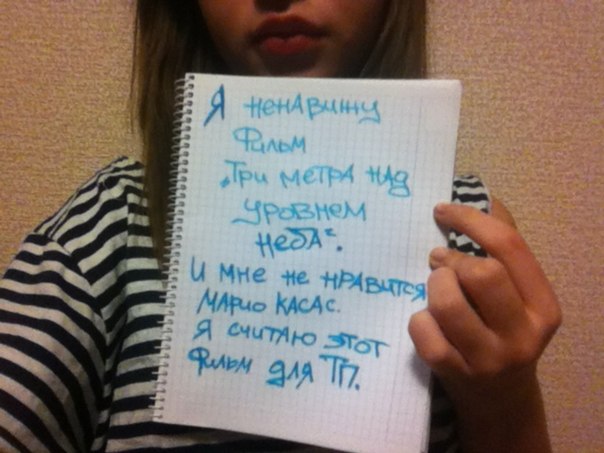 Я ненавижу
Фильм
„Три метра над
уровнем
неба“.
И мне не нравится
Марио Касас.
Я считаю этот
Фильм для ТП.